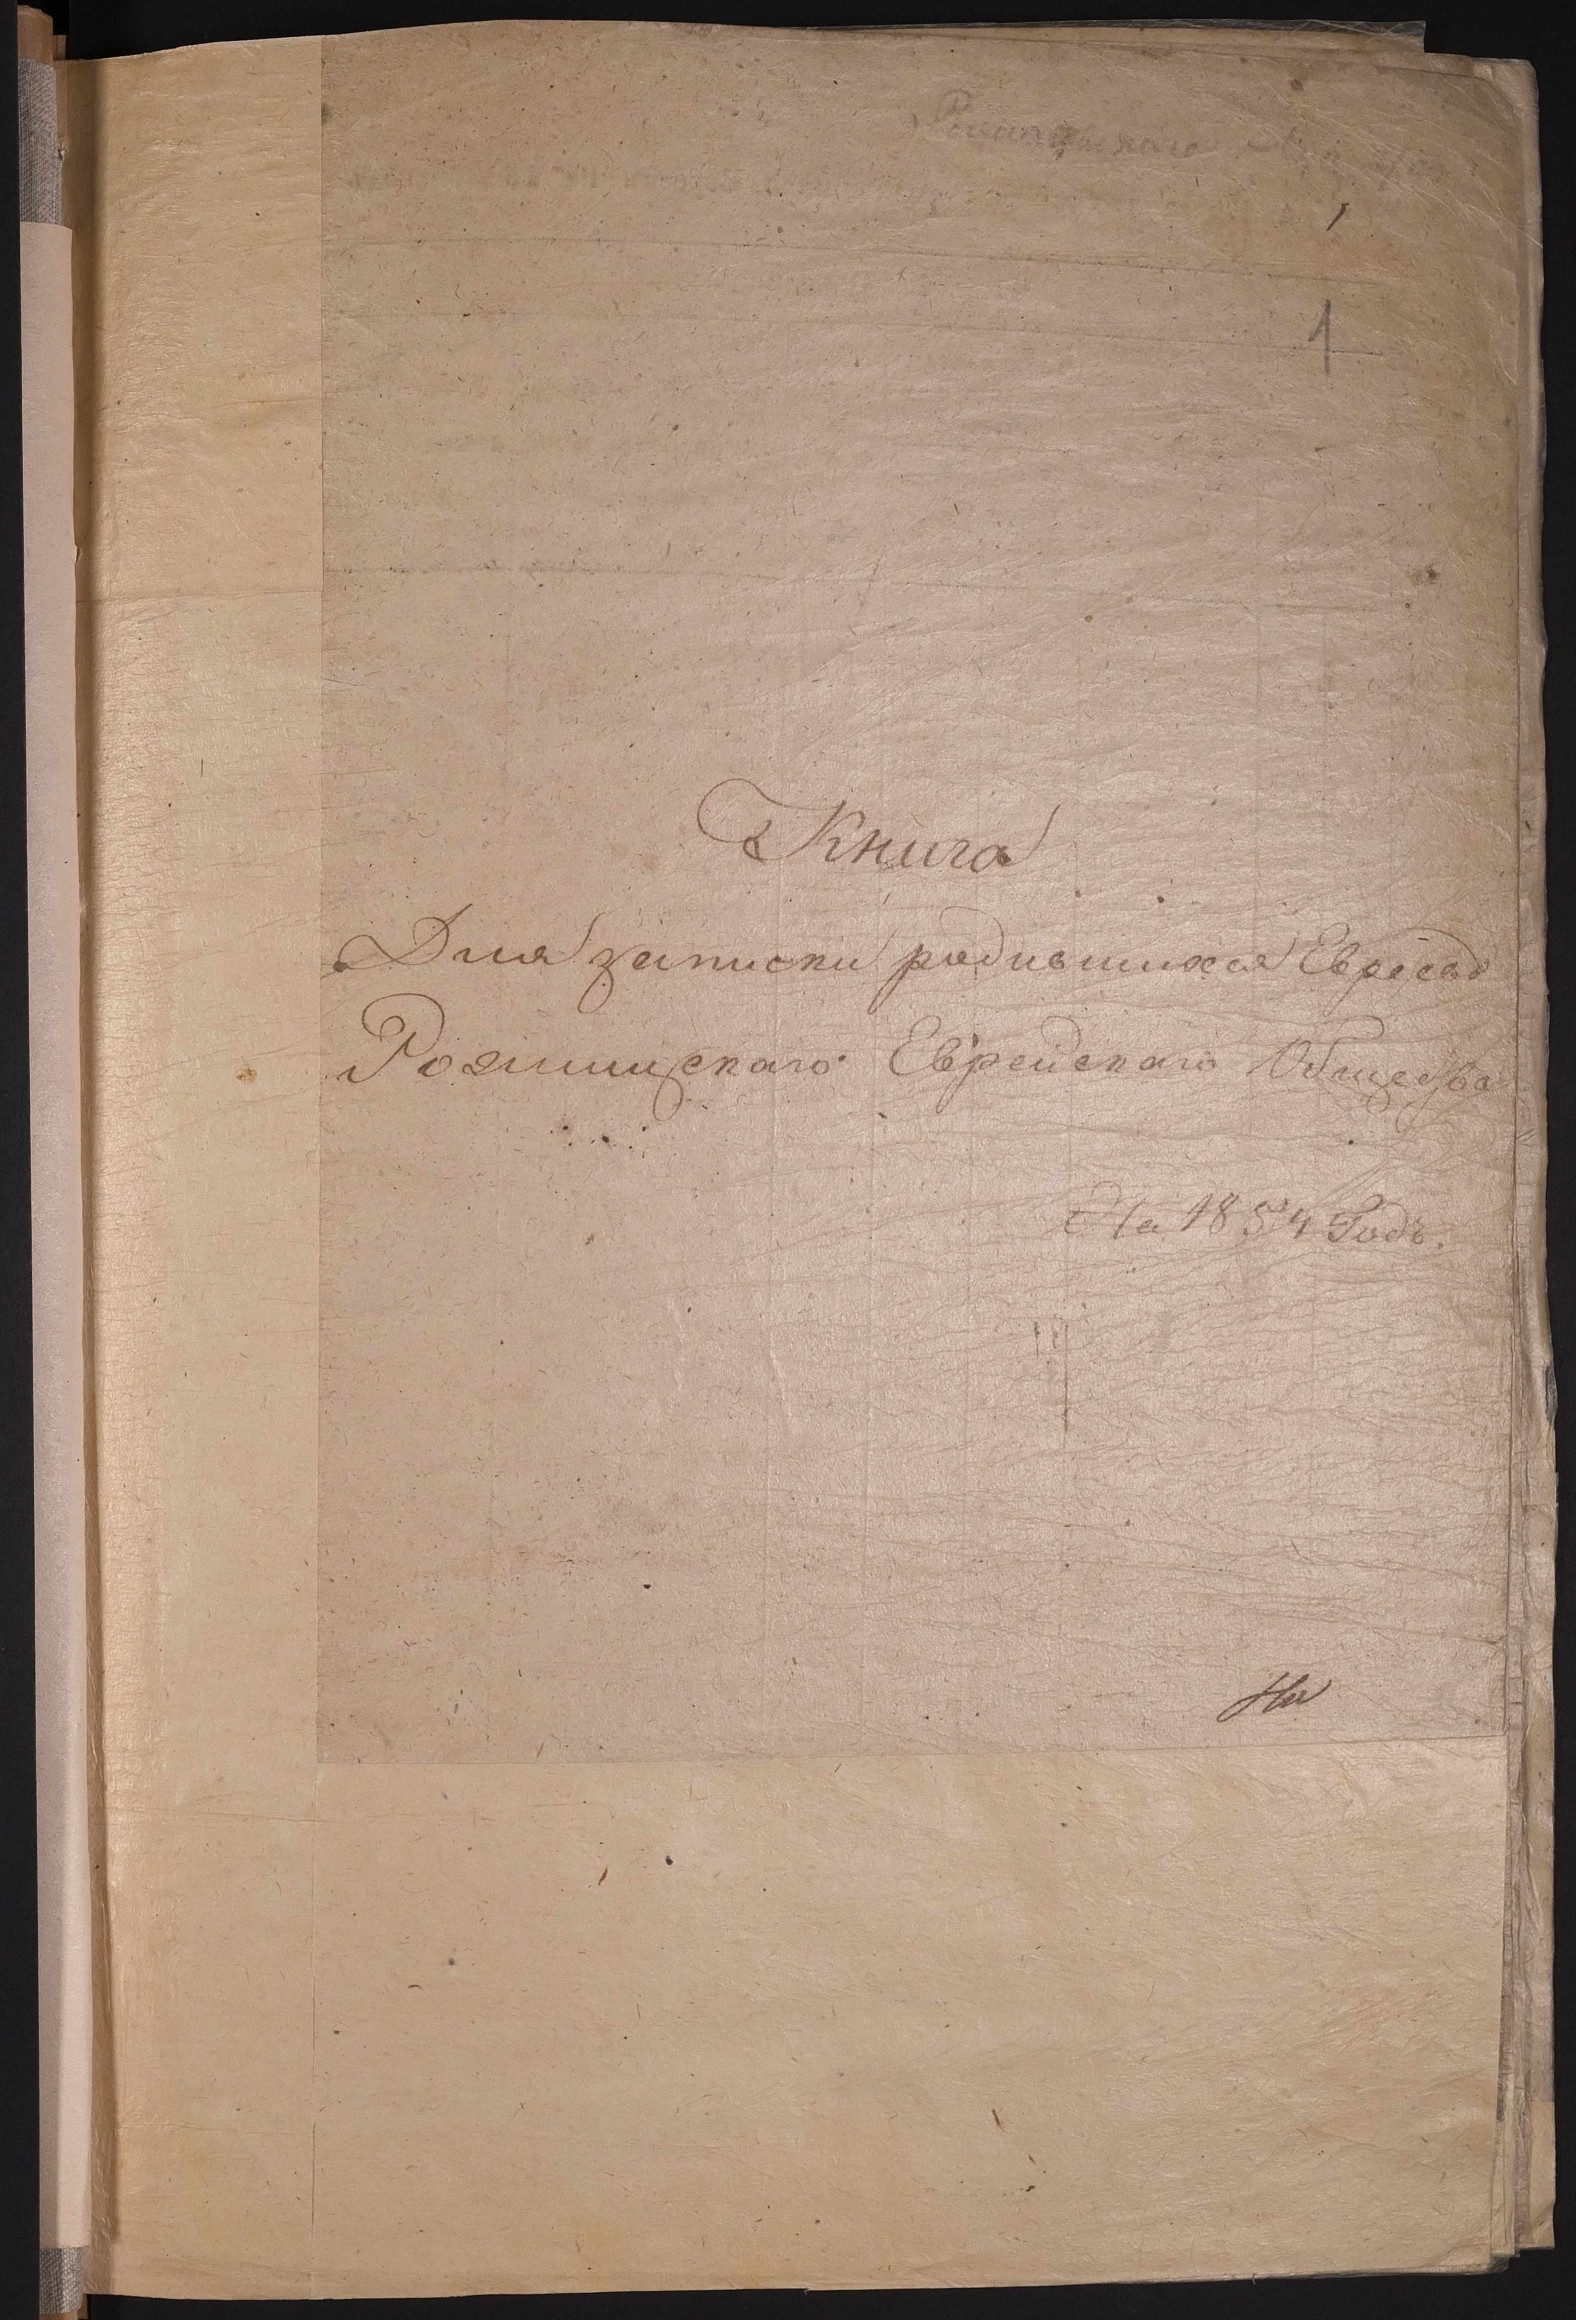 1
Книга
Для записки родившихся Евреевъ
Рожищскаго Еврейскаго Общества
На 1854 Годъ.